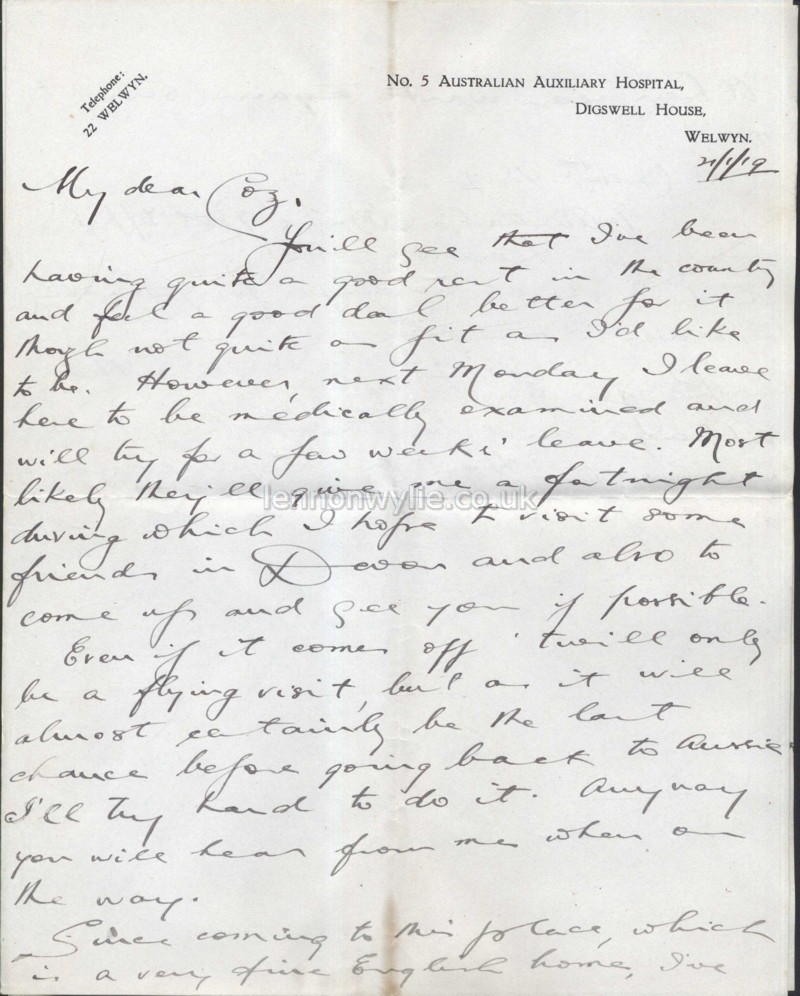 Telephone:
22 WELWYN.
No. 5 Australian Auxiliary Hospital,
Digswell House,
Welwyn.
21/1/19
My dear Coz,
You'll see that I've been
having quite a good rest in the country
and feel a good deal better for it
though not quite as fit as I'd like
to be. However, next Monday I leave
here to be medically examined and
will try for a few weeks' leave. Most
likely they'll give me a fortnight
during which I hope to visit some
friends in Devon and also to
come up and see you if possible.
Even if it comes off 'twill only
be a flying visit, but as it will
almost certainly be the last
chance before going back to Aussie
I'll try hard to do it. Anyway
you will hear from me when on
the way.
Since coming to this place, which
is a very fine English home, I've
lennonwylie.co.uk